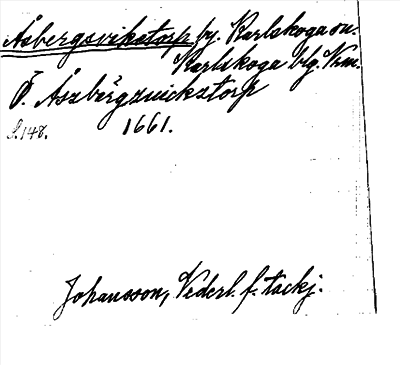 Åsbergsvikstorp by. Karlskoga sn.
Karlskoga blg. Vrm.
Ö. Åszbergzwickztorp
S. 148. 1661.
Johansson, Vederl. f. tackj.